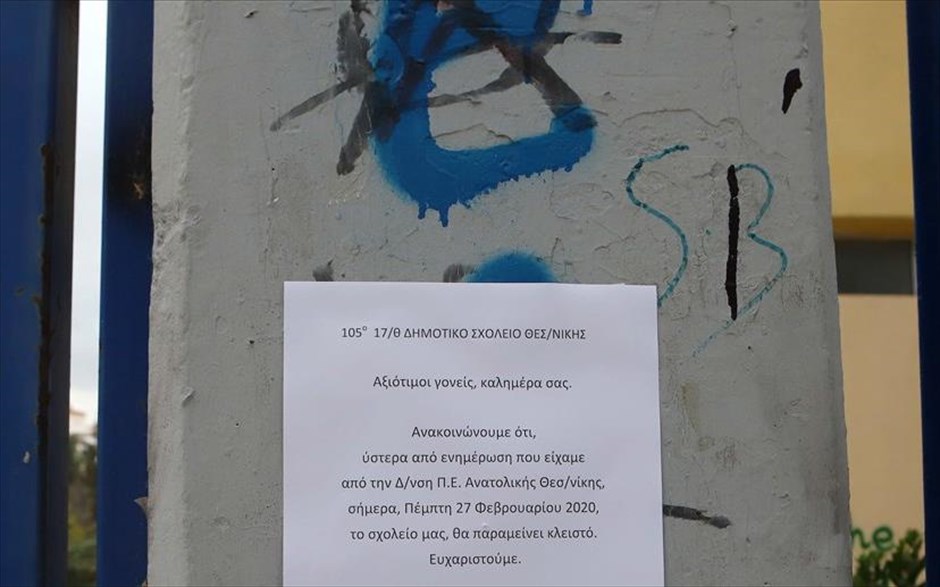 SB
105ο 17/θ ΔΗΜΟΤΙΚΟ ΣΧΟΛΕΙΟ ΘΕΣ/ΝΙΚΗΣ
Αξιότιμοι γονείς, καλημέρα σας.
Ανακοινώνουμε ότι,
ύστερα από ενημέρωση που είχαμε
από την Δ/νση Π.Ε. Ανατολικής Θεσ/νίκης,
σήμερα, Πέμπτη 27 Φεβρουαρίου 2020,
το σχολείο μας, θα παραμείνει κλειστό.
Ευχαριστούμε.